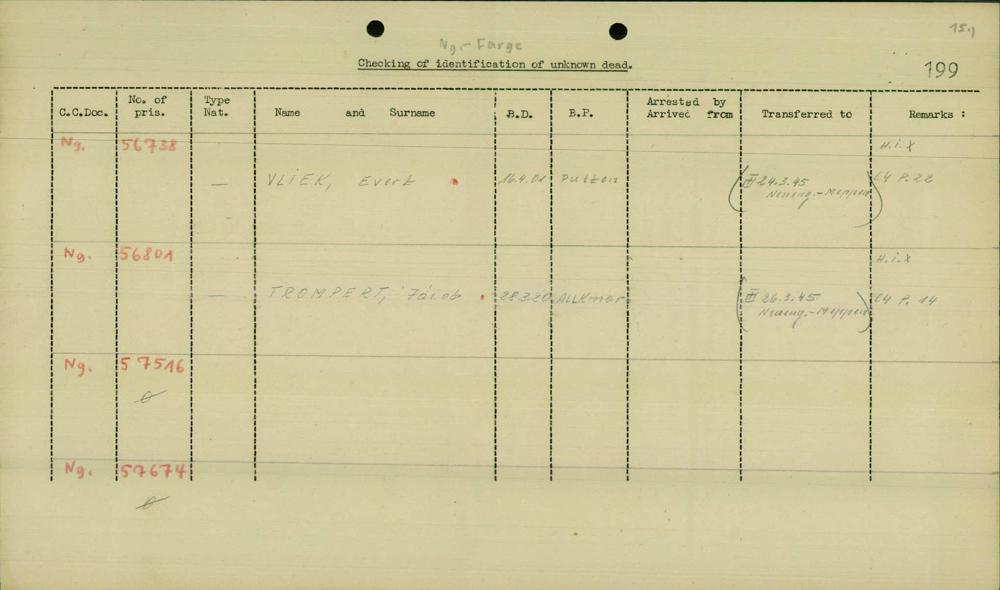 15.)
Ng.- Farge
Checking of identification of unknown dead.
199
C.C.Doc. No. of pris. Type Nat. Name and Surname B.D. B.P. Arrested by Arrived from Transferred to Remarks :
Ng. 56738 H.i.X
— VLIEK, Evert 16.4.01 Putten (III 24.3.45 C4 P. 22
Neueng.-Meppen)
Ng. 56801 H.i.X
— TROMPERT, Jacob 28.3.20 ALLKmar (III 26.3.45 C4 P. 14
Neueng.-Meppen)
Ng. 57516
Ng. 57674